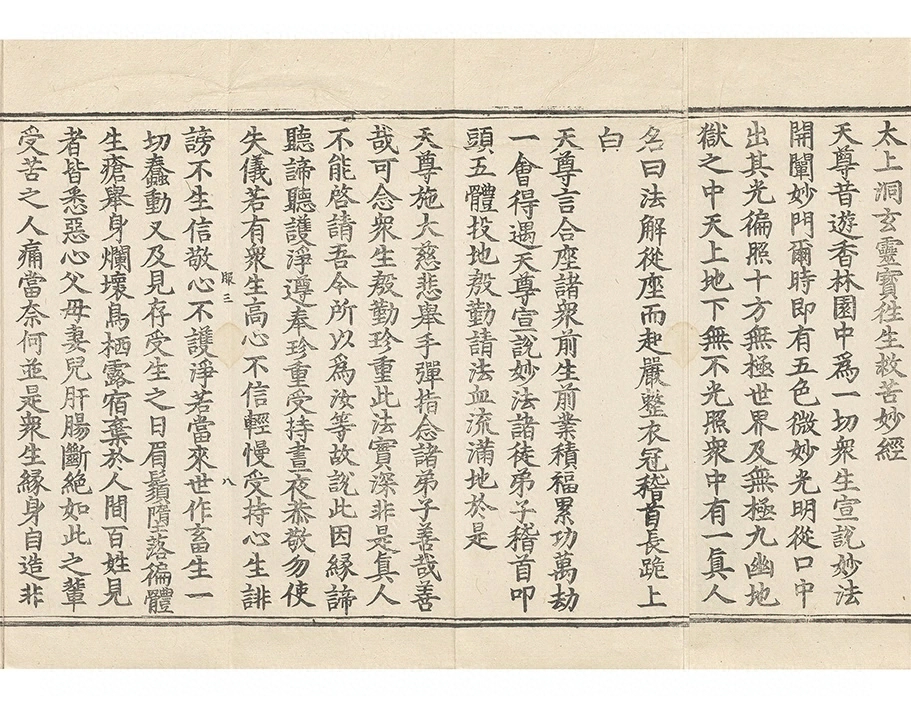 太上洞玄靈寶徃生救苦妙經
天尊昔遊香林園中爲一切衆生宣說妙法
開闡妙門爾時即有五色微妙光明從口中
出其光徧照十方無極世界及無極九幽地
獄之中天上地下無不光照衆中有一眞人
名曰法解從座而起嚴整衣冠稽首長跪上
白
天尊言合座諸衆前生前業積福累功萬劫
一會得遇天尊宣說妙法諸徒弟子稽首叩
頭五體投地殷勤請法血流滿地於是
天尊施大慈悲舉手彈指念諸弟子善哉善
哉可念衆生殷勤珍重此法寶深非是眞人
不能啓請吾今所以爲汝等故說此因緣諦
聽諦聽護淨遵奉珍重受持晝夜恭敬勿使
失儀若有衆生高心不信輕慢受持心生誹
服三 八
謗不生信敬心不護淨若當來世作畜生一
切蠢動又及見存受生之日眉鬚墮落徧體
生瘡舉身爛壞鳥栖露宿棄於人間百姓見
者皆悉惡心父母妻兒肝腸斷絕如此之輩
受苦之人痛當奈何並是衆生緣身自造非